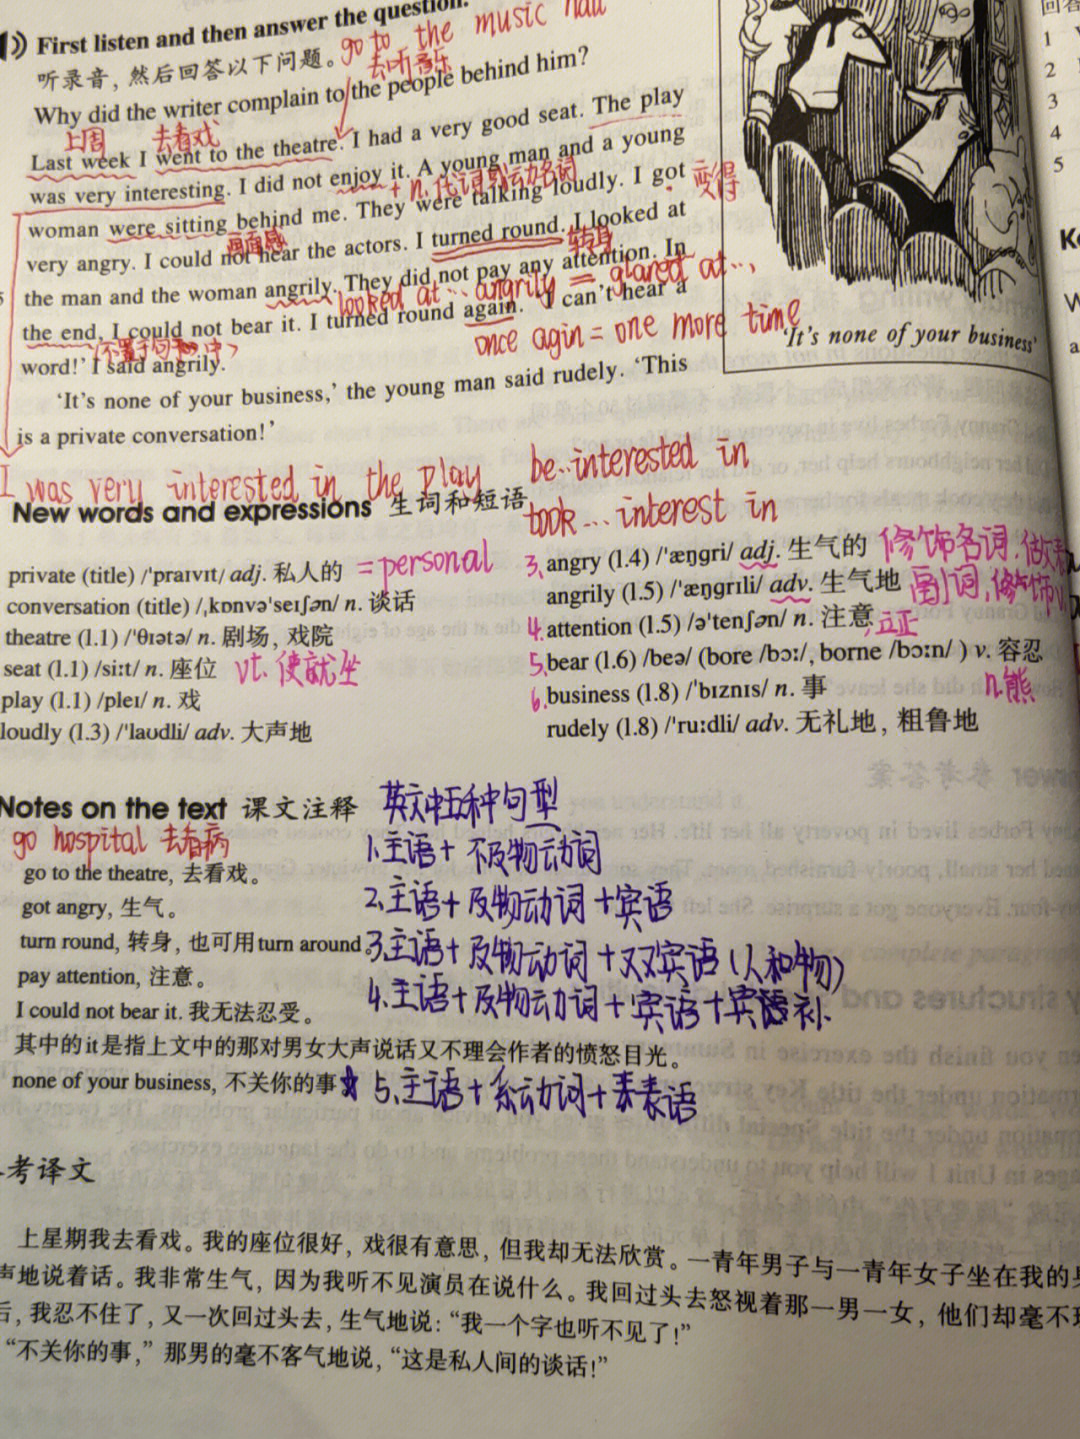 First listen and then answer the question.
go to the music hall
听录音，然后回答以下问题。
去听音乐
Why did the writer complain to the people behind him?
上周 去看戏
Last week I went to the theatre. I had a very good seat. The play
was very interesting. I did not enjoy it. A young man and a young
+ n. 代词或动名词
woman were sitting behind me. They were talking loudly. I got
变得
画面感
very angry. I could not hear the actors. I turned round. I looked at
转身
the man and the woman angrily. They did not pay any attention. In
looked at... angrily = glared at...,
the end, I could not bear it. I turned round again. 'I can't hear a
once agin = one more time
word!' I said angrily.
'It's none of your business,' the young man said rudely. 'This
is a private conversation!'
'It's none of your business'
I was very interested in the play
be...interested in
took...interest in
New words and expressions 生词和短语
private (title) /'praɪvɪt/ adj. 私人的 = personal
conversation (title) /ˌkɒnvə'seɪʃən/ n. 谈话
theatre (l.1) /'θɪətə/ n. 剧场，戏院
seat (l.1) /siːt/ n. 座位 vt. 使就坐
play (l.1) /pleɪ/ n. 戏
loudly (l.3) /'laʊdli/ adv. 大声地
3. angry (l.4) /'æŋgri/ adj. 生气的 修饰名词.做表
angrily (l.5) /'æŋgrɪli/ adv. 生气地 副词,修饰
4. attention (l.5) /ə'tenʃən/ n. 注意,立正
5. bear (l.6) /beə/ (bore /bɔː/, borne /bɔːn/ ) v. 容忍
n.熊
6. business (l.8) /'bɪznɪs/ n. 事
rudely (l.8) /'ruːdli/ adv. 无礼地，粗鲁地
Notes on the text 课文注释
go hospital 去看病
go to the theatre, 去看戏。
got angry, 生气。
turn round, 转身，也可用turn around。
pay attention, 注意。
I could not bear it. 我无法忍受。
其中的it是指上文中的那对男女大声说话又不理会作者的愤怒目光。
none of your business, 不关你的事
英文中五种句型
1.主语+不及物动词
2.主语+及物动词+宾语
3.主语+及物动词+双宾语(人和物)
4.主语+及物动词+宾语+宾补
5.主语+系动词+表语
考译文
上星期我去看戏。我的座位很好，戏很有意思，但我却无法欣赏。一青年男子与一青年女子坐在我的身
声地说着话。我非常生气，因为我听不见演员在说什么。我回过头去怒视着那一男一女，他们却毫不理
后，我忍不住了，又一次回过头去，生气地说：“我一个字也听不见了！”
“不关你的事，”那男的毫不客气地说，“这是私人间的谈话！”